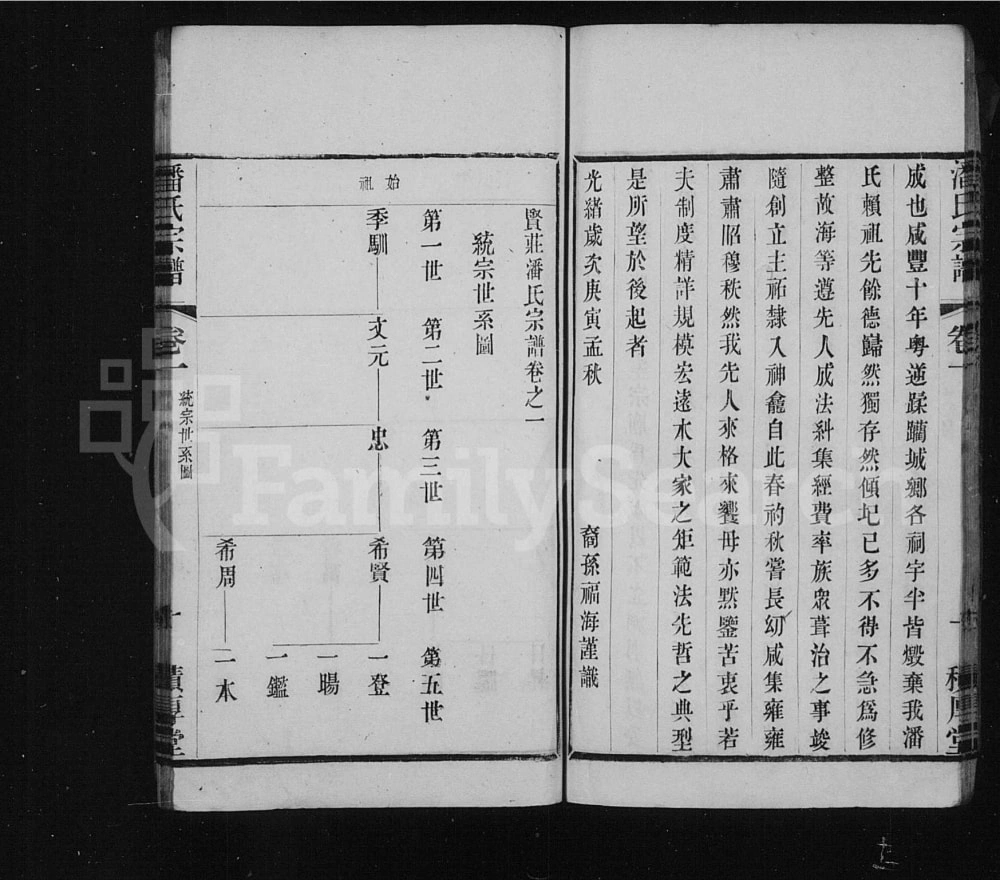 成也咸豐十年粵逆蹂躪城鄉各祠宇半皆燬棄我潘
氏賴祖先餘德歸然獨存然傾圮已多不得不急為修
整故海等遵先人成法糾集經費率族眾葺治之事竣
隨創立主祏隸入神龕自此春礿秋嘗長幼咸集雍雍
肅肅昭穆秩然我先人來格來饗毋亦默鑒苦衷乎若
夫制度精詳規模宏遠永大家之矩範法先哲之典型
是所望於後起者
光緒歲次庚寅孟秋
裔孫福海謹識
潘氏宗譜
卷一
積厚堂
賢莊潘氏宗譜卷之一
統宗世系圖
第一世 第二世 第三世 第四世 第五世
始祖
季馴 文元 忠 希賢 一登
一暘
一鑑
希周 一本
潘氏宗譜
卷一
統宗世系圖
十
積厚堂
FamilySearch